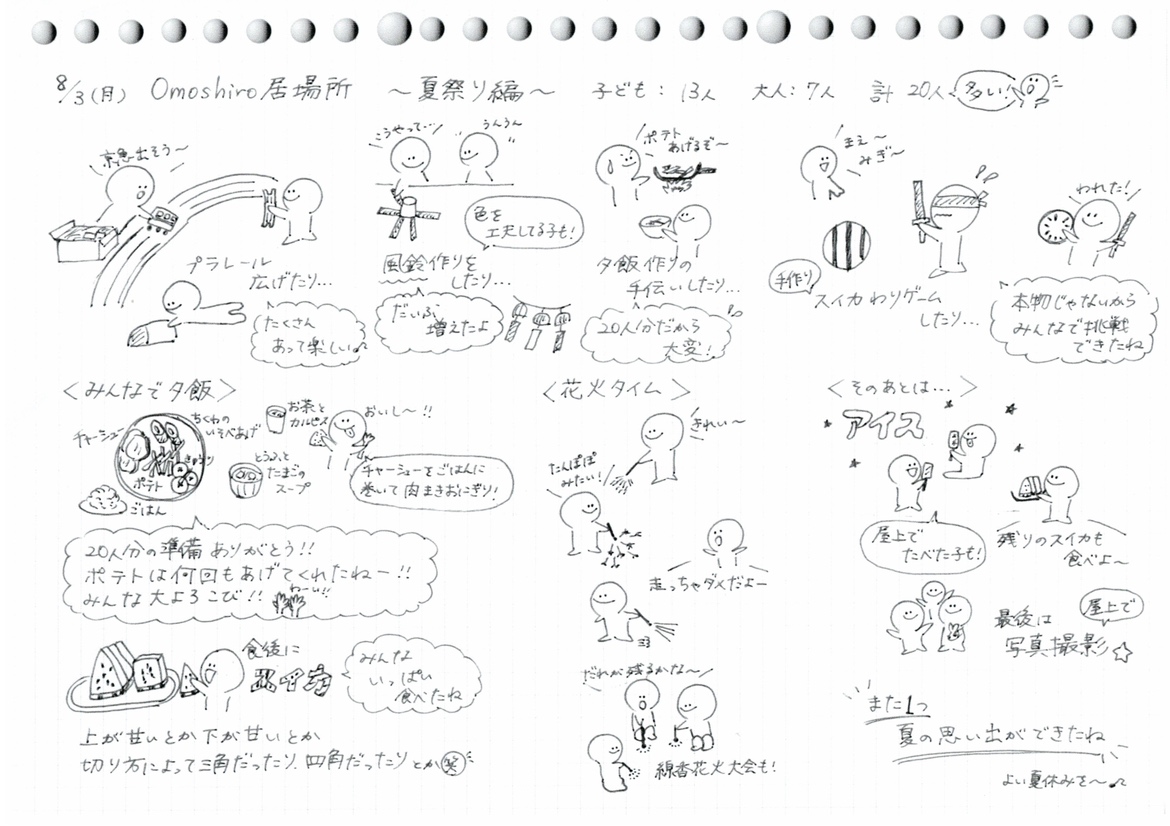 8/3(月) Omoshiro居場所 ～夏祭り編～ 子ども：13人 大人：7人 計 20人 多い！
京急出そう～
プラレール
広げたり…
たくさん
あって楽しい♫
こうやって…
うんうん
色を
工夫してる子も！
風鈴作りを
したり…
だいぶ
増えたよ
ポテト
あげるぞ～
夕飯作りの
手伝いしたり…
20人分だから
大変！
まえ～
みぎ～
手作り
スイカわりゲーム
したり…
われた！
本物じゃないから
みんなで挑戦
できたね
＜みんなで夕飯＞
チャーシュー
ちくわの
いそべあげ
きゅうり
ポテト
ごはん
お茶と
カルピス
とうふと
たまごの
スープ
おいし～！！
チャーシューをごはんに
巻いて肉まきおにぎり！
20人分の準備ありがとう！！
ポテトは何回もあげてくれたねー！！
みんな大よろこび！！
わーい！！
食後に
スイカ
みんな
いっぱい
食べたね
上が甘いとか下が甘いとか
切り方によって三角だったり、四角だったりとか笑
＜花火タイム＞
きれい～
たんぽぽ
みたい！
走っちゃダメだよー
だれが残るかな～
線香花火大会も！
＜そのあとは…＞
アイス
屋上で
たべた子も！
残りのスイカも
食べよ～
最後は
屋上で
写真撮影☆
また1つ
夏の思い出ができたね
よい夏休みを～♫